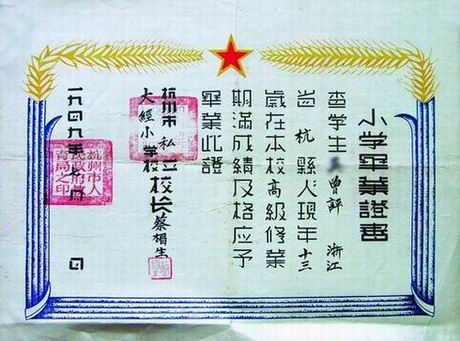 小学畢業證書
查学生 曾評 浙江
省杭縣人現年十三
歲在本校高級修業
期滿成績及格应予
畢業此證
杭州市私立
大經小学校校长蔡相生
一九四九年七月 日
杭州市人
民政府教
育局之印